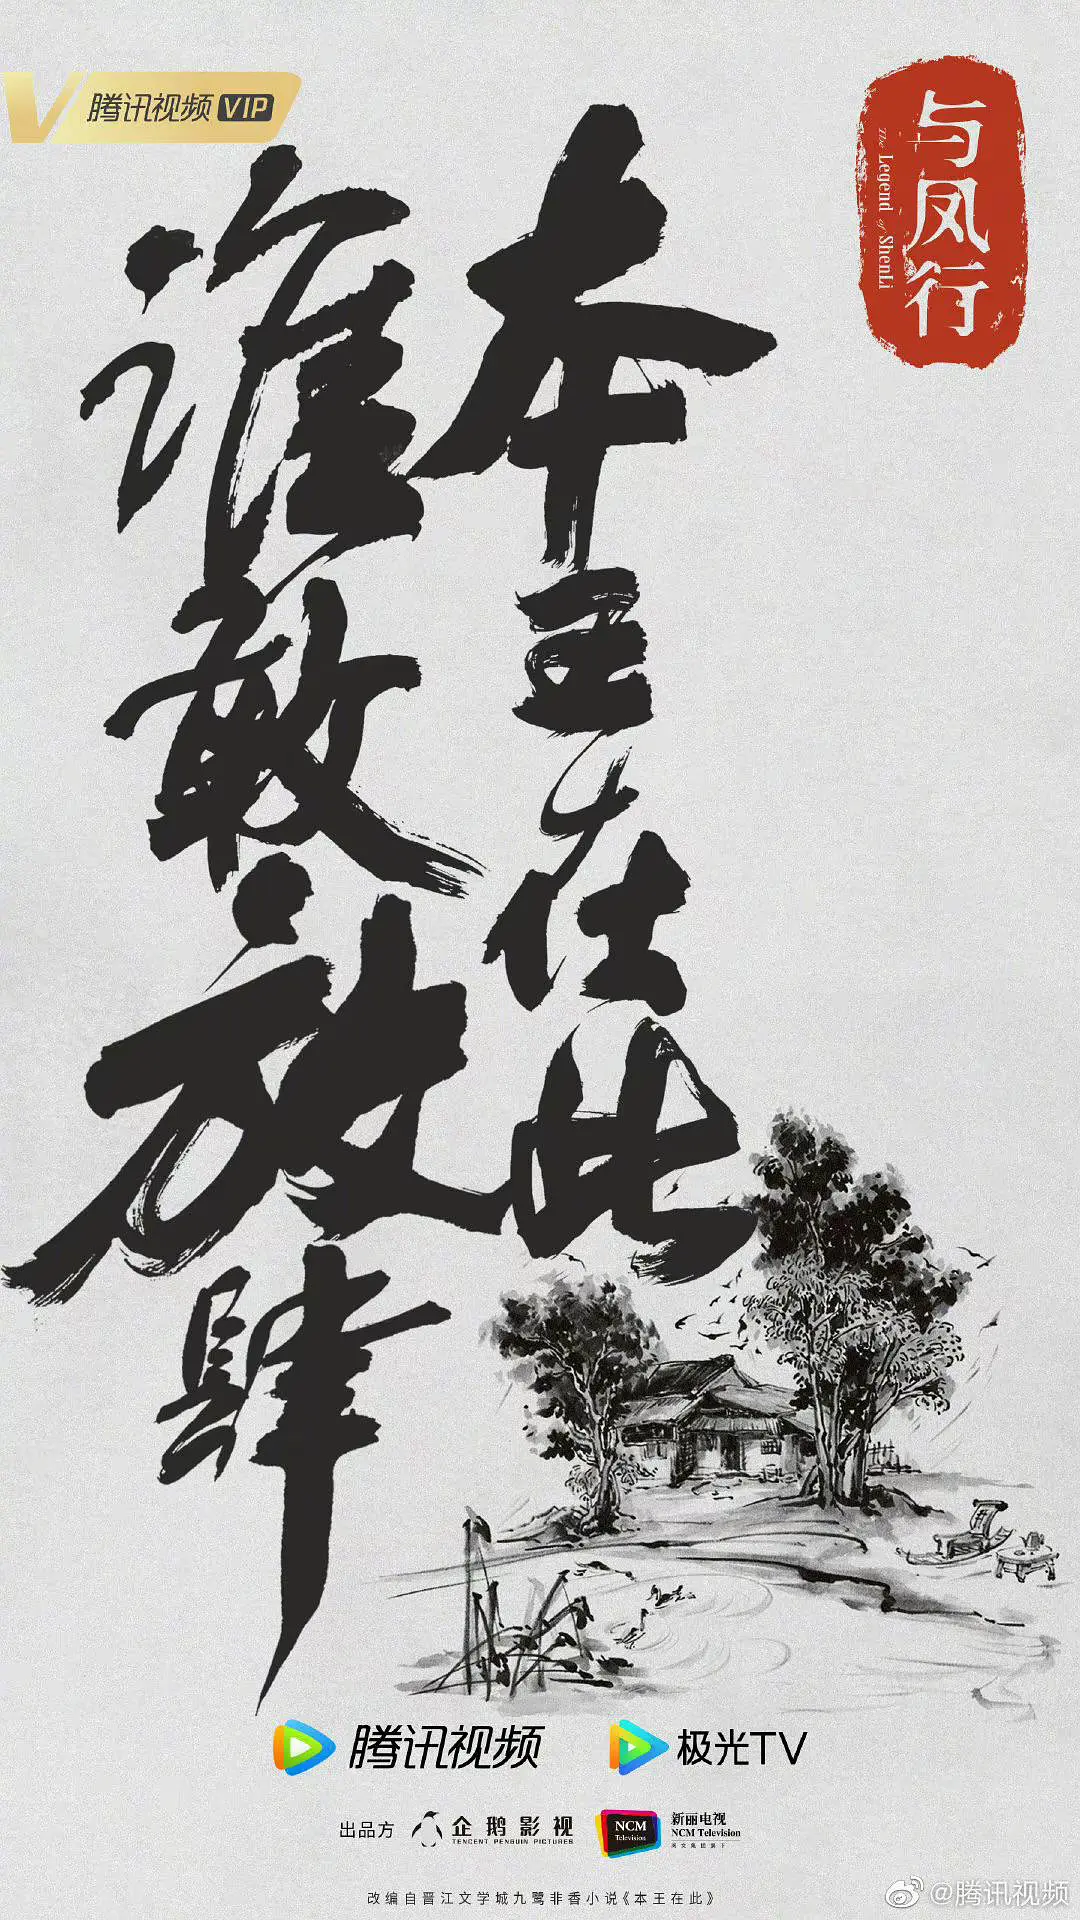 腾讯视频 VIP
与凤行
The Legend of ShenLi
本王在此
谁敢放肆
腾讯视频
极光TV
出品方
企鹅影视
TENCENT PENGUIN PICTURES
NCM
Television
新丽电视
NCM Television
改编自晋江文学城九鹭非香小说《本王在此》
@腾讯视频